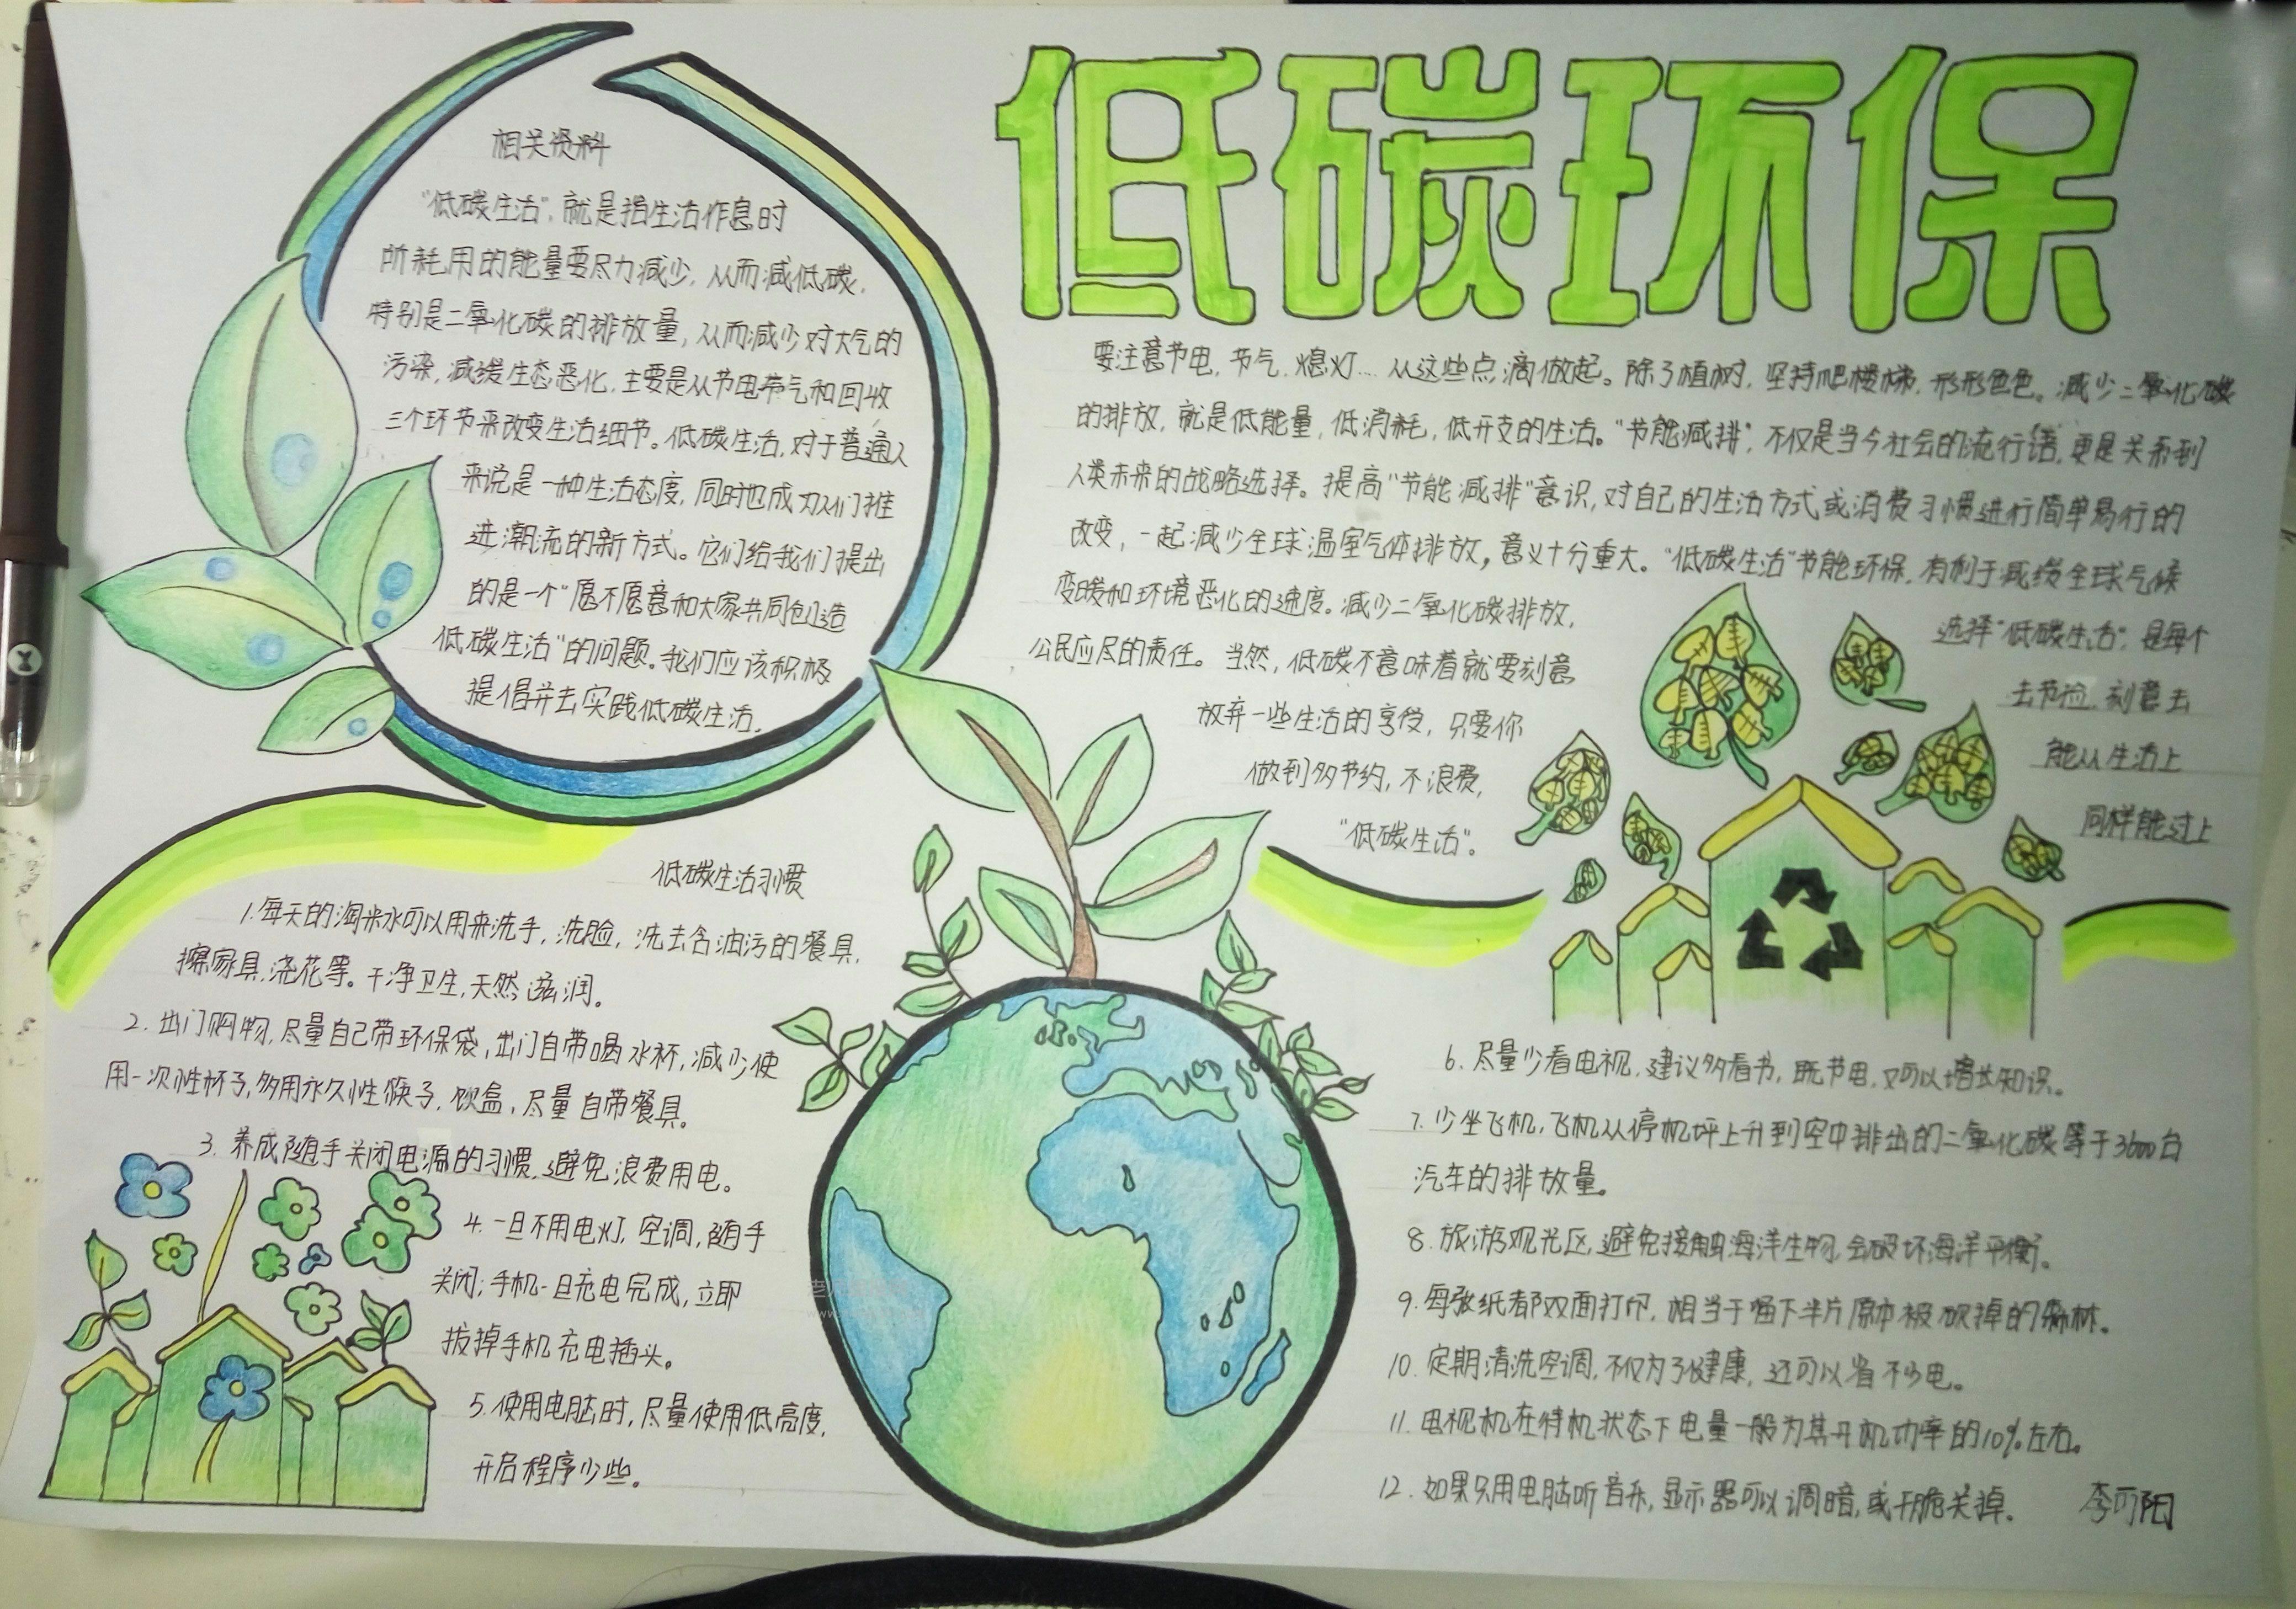 低碳环保
相关资料
"低碳生活",就是指生活作息时
所耗用的能量要尽力减少,从而减低碳,
特别是二氧化碳的排放量,从而减少对大气的
污染,减缓生态恶化,主要是从节电节气和回收
三个环节来改变生活细节。低碳生活,对于普通人
来说是一种生活态度,同时也成为人们推
进潮流的新方式。它们给我们提出
的是一个"愿不愿意和大家共同创造
低碳生活"的问题。我们应该积极
提倡并去实践低碳生活。
要注意节电,节气,熄灯....从这些点滴做起。除了植树,坚持爬楼梯,形形色色。减少二氧化碳
的排放,就是低能量,低消耗,低开支的生活。"节能减排",不仅是当今社会的流行语,更是关系到
人类未来的战略选择。提高"节能减排"意识,对自己的生活方式或消费习惯进行简单易行的
改变,一起减少全球温室气体排放,意义十分重大。"低碳生活"节能环保,有利于减缓全球气候
变暖和环境恶化的速度。减少二氧化碳排放, 选择"低碳生活",是每个
公民应尽的责任。当然,低碳不意味着就要刻意 去节俭,刻意去
放弃一些生活的享受,只要你 能从生活上
做到多节约,不浪费, 同样能过上
"低碳生活"。
低碳生活习惯
1.每天的淘米水可以用来洗手,洗脸,洗去含油污的餐具,
擦家具,浇花等。干净卫生,天然滋润。
2.出门购物,尽量自己带环保袋,出门自带喝水杯,减少使
用一次性杯子,多用永久性筷子,饮盒,尽量自带餐具。
3.养成随手关闭电源的习惯,避免浪费用电。
4.一旦不用电灯,空调,随手
关闭;手机一旦充电完成,立即
拔掉手机充电插头。
5.使用电脑时,尽量使用低亮度,
开启程序少些。
6.尽量少看电视,建议多看书,既节电,又可以增长知识。
7.少坐飞机,飞机从停机坪上升到空中排出的二氧化碳等于3600台
汽车的排放量。
8.旅游观光区,避免接触海洋生物,会破坏海洋平衡。
9.每张纸都双面打印,相当于留下半片原本被砍掉的森林。
10.定期清洗空调,不仅为了健康,还可以省不少电。
11.电视机在待机状态下电量一般为其开机功率的10%左右。
12.如果只用电脑听音乐,显示器可以调暗,或干脆关掉。
李可阳